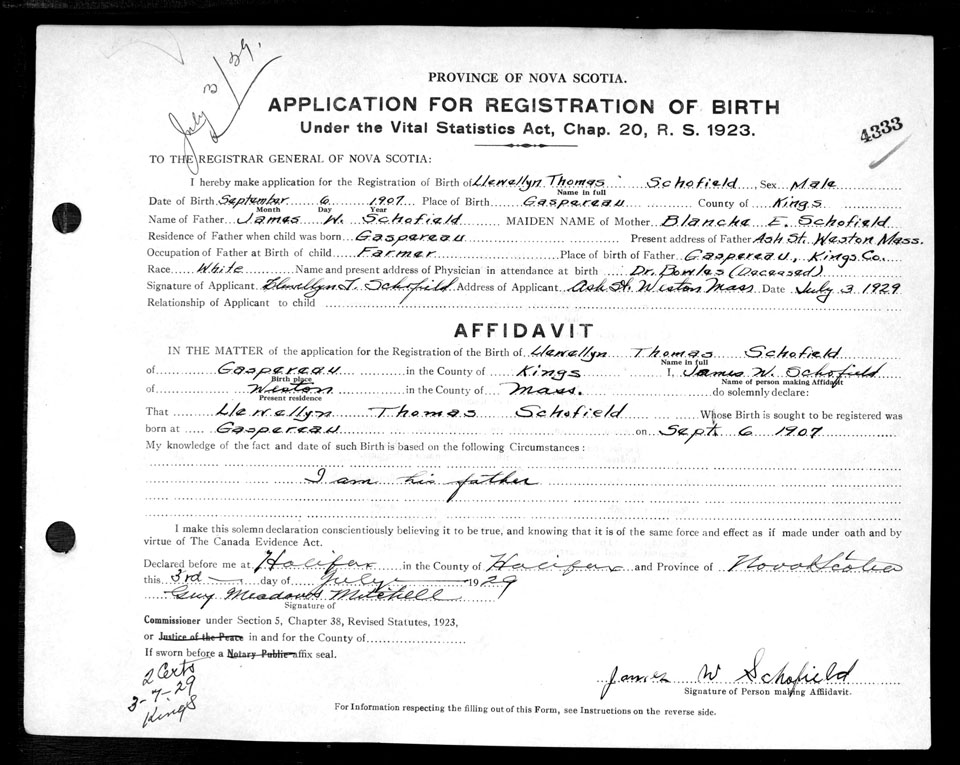 July 3/29.
PROVINCE OF NOVA SCOTIA.
APPLICATION FOR REGISTRATION OF BIRTH
Under the Vital Statistics Act, Chap. 20, R. S. 1923.
4333
TO THE REGISTRAR GENERAL OF NOVA SCOTIA:
I hereby make application for the Registration of Birth of Llewellyn Thomas Schofield Sex Male
Name in full
Date of Birth September 6 1907 Place of Birth Gaspereau County of Kings
Month Day Year
Name of Father James W. Schofield MAIDEN NAME of Mother Blanche E. Schofield
Residence of Father when child was born Gaspereau Present address of Father Ash St. Weston Mass.
Occupation of Father at Birth of child Farmer Place of birth of Father Gaspereau, Kings Co.
Race White Name and present address of Physician in attendance at birth Dr. Bowles (Deceased)
Signature of Applicant Llewellyn T. Schofield Address of Applicant Ash St. Weston Mass Date July 3 1929
Relationship of Applicant to child
AFFIDAVIT
IN THE MATTER of the application for the Registration of the Birth of Llewellyn Thomas Schofield
Name in full
of Gaspereau in the County of Kings I, James W. Schofield
Birth place Name of person making Affidavit
of Weston in the County of Mass. do solemnly declare:
Present residence
That Llewellyn Thomas Schofield Whose Birth is sought to be registered was
born at Gaspereau on Sept. 6 1907
My knowledge of the fact and date of such Birth is based on the following Circumstances:
I am his father
I make this solemn declaration conscientiously believing it to be true, and knowing that it is of the same force and effect as if made under oath and by
virtue of The Canada Evidence Act.
Declared before me at Halifax in the County of Halifax and Province of Nova Scotia
this 3rd day of July 1929
Guy Meadows Mitchell
Signature of
Commissioner under Section 5, Chapter 38, Revised Statutes, 1923,
or Justice of the Peace in and for the County of
If sworn before a Notary Public affix seal.
2 Certs
3-7-29
Kings
James W Schofield
Signature of Person making Affidavit.
For Information respecting the filling out of this Form, see Instructions on the reverse side.